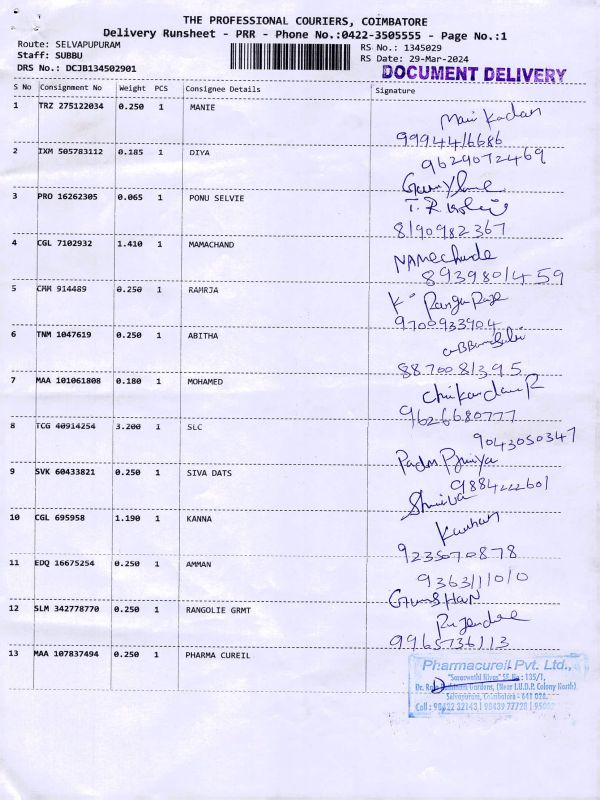 THE PROFESSIONAL COURIERS, COIMBATORE
Delivery Runsheet - PRR - Phone No.:0422-3505555 - Page No.:1
Route: SELVAPUPURAM
Staff: SUBBU
DRS No.: DCJB134502901
RS No.: 1345029
RS Date: 29-Mar-2024
DOCUMENT DELIVERY
S No Consignment No Weight PCS Consignee Details Signature
1 TRZ 275122034 0.250 1 MANIE
9994416686
2 IXM 505783112 0.185 1 DIYA
9629072469
3 PRO 16262305 0.065 1 PONU SELVIE
8190982367
4 CGL 7102932 1.410 1 MAMACHAND
8939801459
5 CMM 914489 0.250 1 RAMRJA
9700933904
6 TNM 1047619 0.250 1 ABITHA
8870081395
7 MAA 101061808 0.180 1 MOHAMED
9626680777
8 TCG 40914254 3.200 1 SLC
9043050347
9 SVK 60433821 0.250 1 SIVA DATS
9884222601
10 CGL 695958 1.190 1 KANNA
Kannan
9235070878
11 EDQ 16675254 0.250 1 AMMAN
9363111010
12 SLM 342778770 0.250 1 RANGOLIE GRMT
9965736113
13 MAA 107837494 0.250 1 PHARMA CUREIL
Pharmacureil Pvt. Ltd.,
"Saraswathi Nivas" SF.No : 135/1,
Gardens, (Near I.U.D.P. Colony North)
Selvapuram, Coimbatore - 641 026.
Cell : 98422 32143 | 98439 77728 |